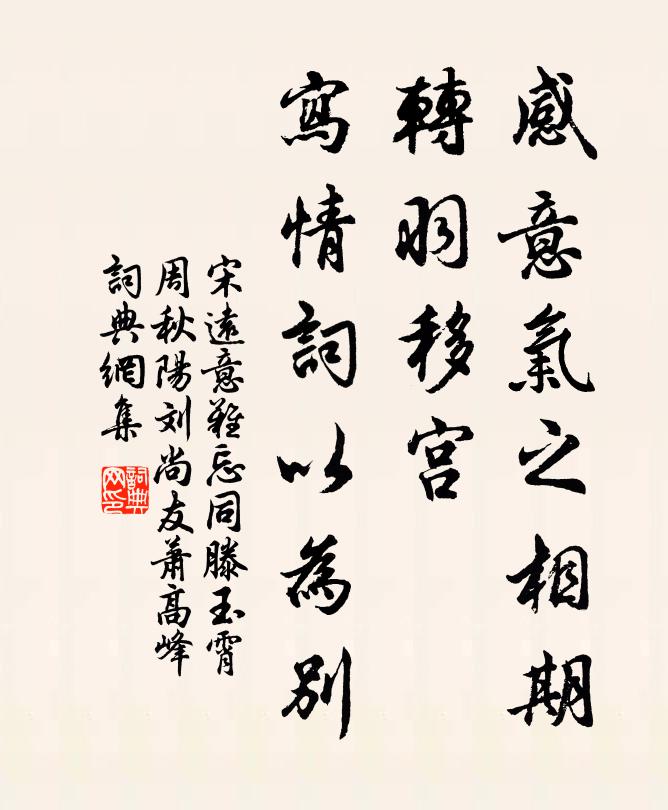 感意氣之相期
轉羽移宫
寫情詞以為別
宋遠意難忘同滕玉霄
周秋陽刘尚友蕭高峰
詞典網集
詞典
网印